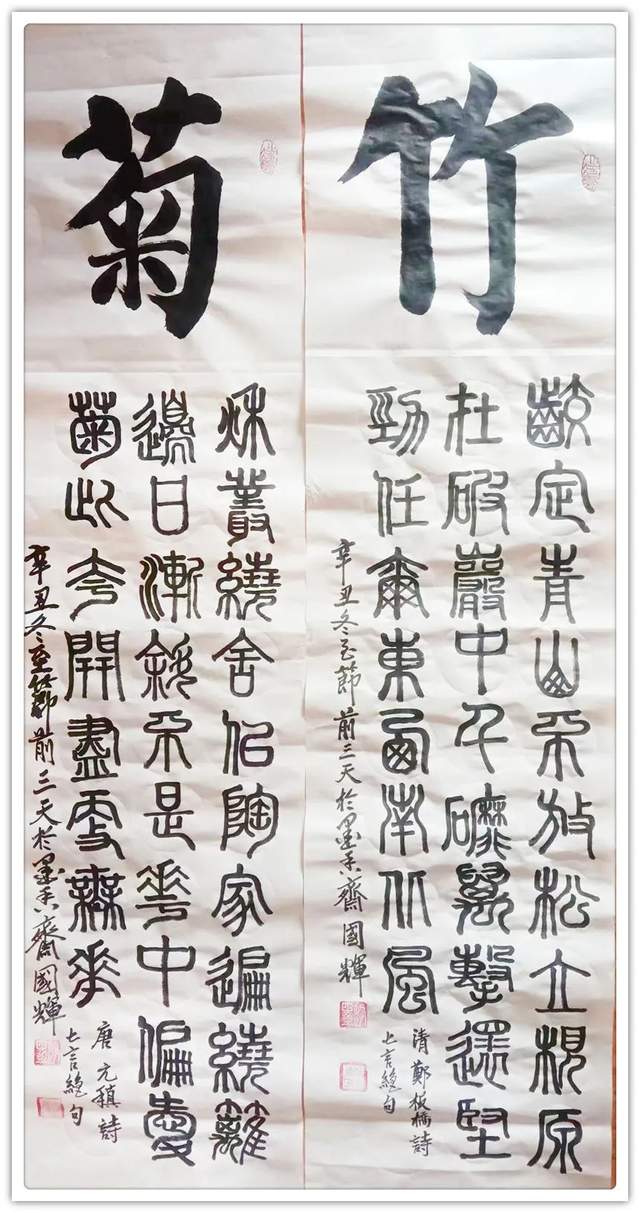 竹
齩定青山不放松立根原
在破巖中千磨萬擊還堅
勁任爾東西南北風
清鄭板橋詩
七言絕句
辛丑冬至節前三天於墨香齋國輝
菊
秋叢繞舍似陶家遍繞籬
邊日漸斜不是花中偏愛
菊此花開盡更無花
唐元稹詩
七言絕句
辛丑冬至節前三天於墨香齋國輝